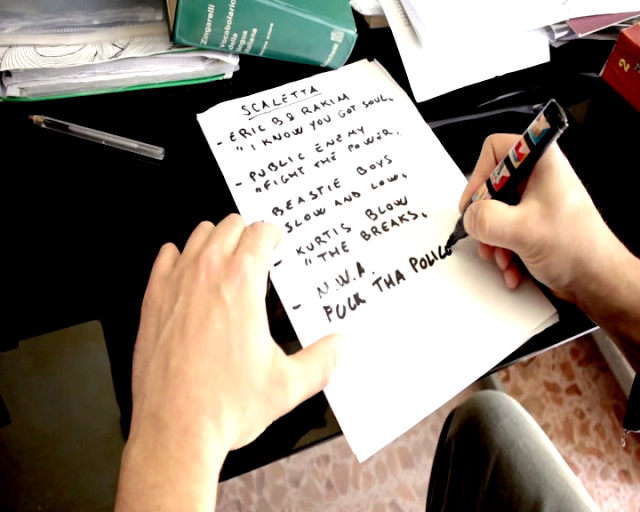 Zingarelli
Vocabolario
della
lingua
italiana
SCALETTA
- ERIC B & RAKIM
"I KNOW YOU GOT SOUL"
- PUBLIC ENEMY
"FIGHT THE POWER"
BEASTIE BOYS
SLOW AND LOW"
- KURTIS BLOW
"THE BREAKS"
- N.W.A.
FUCK THA POLICE
2